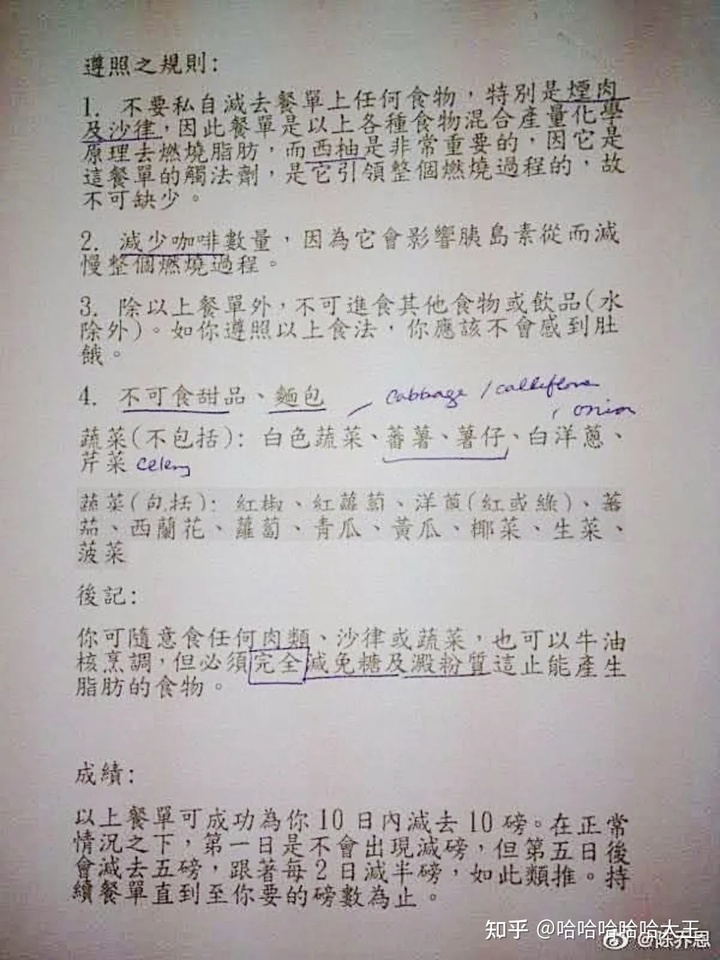 遵照之規則:
1. 不要私自減去餐單上任何食物，特別是煙肉
及沙律，因此餐單是以上各種食物混合產量化學
原理去燃燒脂肪，而西柚是非常重要的，因它是
這餐單的觸法劑，是它引領整個燃燒過程的，故
不可缺少。
2. 減少咖啡數量，因為它會影響胰島素從而減
慢整個燃燒過程。
3. 除以上餐單外，不可進食其他食物或飲品(水
除外)。如你遵照以上食法，你應該不會感到肚
餓。
4. 不可食甜品、麵包
cabbage / calliflore
, onion
蔬菜(不包括): 白色蔬菜、蕃薯、薯仔、白洋蔥、
芹菜 celery
蔬菜(包括): 紅椒、紅蘿蔔、洋蔥(紅或綠)、蕃
茄、西蘭花、蘿蔔、青瓜、黃瓜、椰菜、生菜、
菠菜
後記:
你可隨意食任何肉類、沙律或蔬菜，也可以牛油
核烹調，但必須完全減免糖及澱粉質這止能產生
脂肪的食物。
成績:
以上餐單可成功為你10日內減去10磅。在正常
情況之下，第一日是不會出現減磅，但第五日後
會減去五磅，跟著每2日減半磅，如此類推。持
續餐單直到至你要的磅數為止。
知乎 @哈哈哈哈哈大王
@陈乔恩